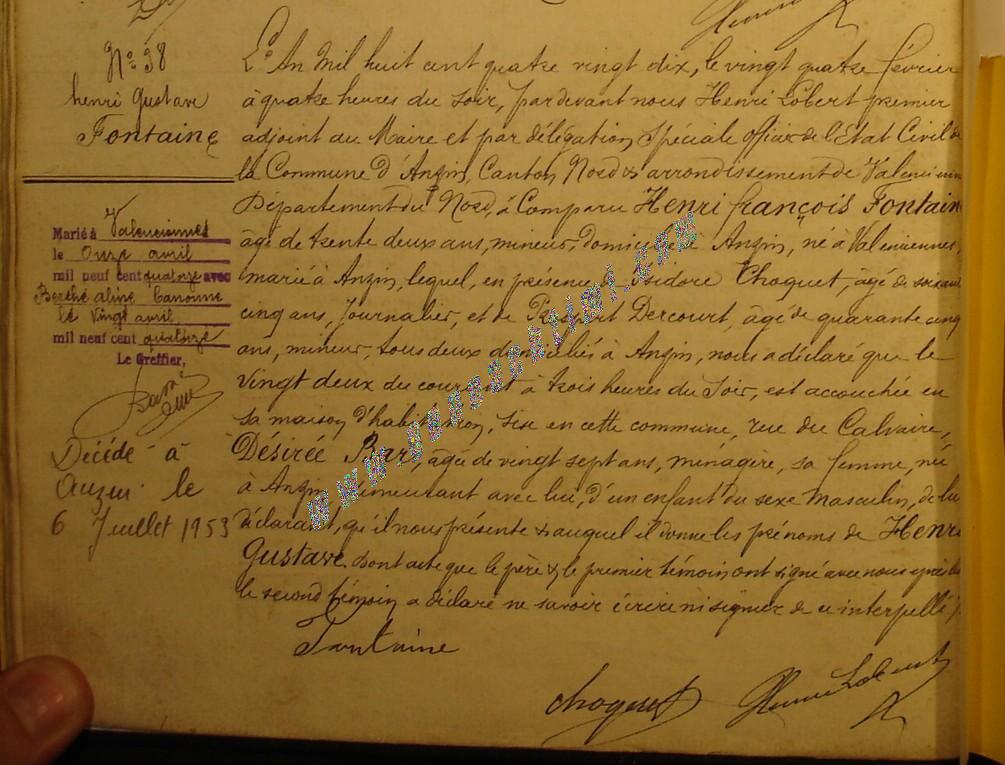 No 38
henri Gustave
Fontaine
Marié à Valenciennes
le Onze avril
mil neuf cent quatorze avec
Berthe Aline Canonne
le Vingt avril
mil neuf cent quatorze
Le Greffier,
Décédé à
Anzin le
6 Juillet 1953
L'An mil huit cent quatre vingt dix, le vingt quatre février
à quatre heures du soir, pardevant nous Henri Lobert premier
adjoint au Maire et par délégation spéciale officier de l'État Civil de
la Commune d'Anzin, Canton Nord & arrondissement de Valencien
Département du Nord, a Comparu Henri françois Fontain
âgé de trente deux ans, mineur, domicilié à Anzin, né à Valenciennes,
marié à Anzin, lequel, en présence Isidore Choquet, âgé de soixant
cinq ans, Journalier, et de Dercourt, âgé de quarante cinq
ans, mineur, tous deux domiciliés à Anzin, nous a déclaré que le
Vingt deux du courant à trois heures du soir, est accouchée en
sa maison d'habitation, sise en cette commune, rue du Calvaire,
Désirée Bar, âgée de vingt sept ans, ménagère, sa femme, née
à Anzin, demeurant avec lui, d'un enfant du sexe masculin, de lui
déclarant, qu'il nous présente & auquel il donne les prénoms de Henri
Gustave. Dont acte que le père & le premier témoin ont signé avec nous après
le second témoin a déclaré ne savoir écrire ni signer de ce interpellé
Fontaine
Choquet Henri Lobert
www.geneanaute.com